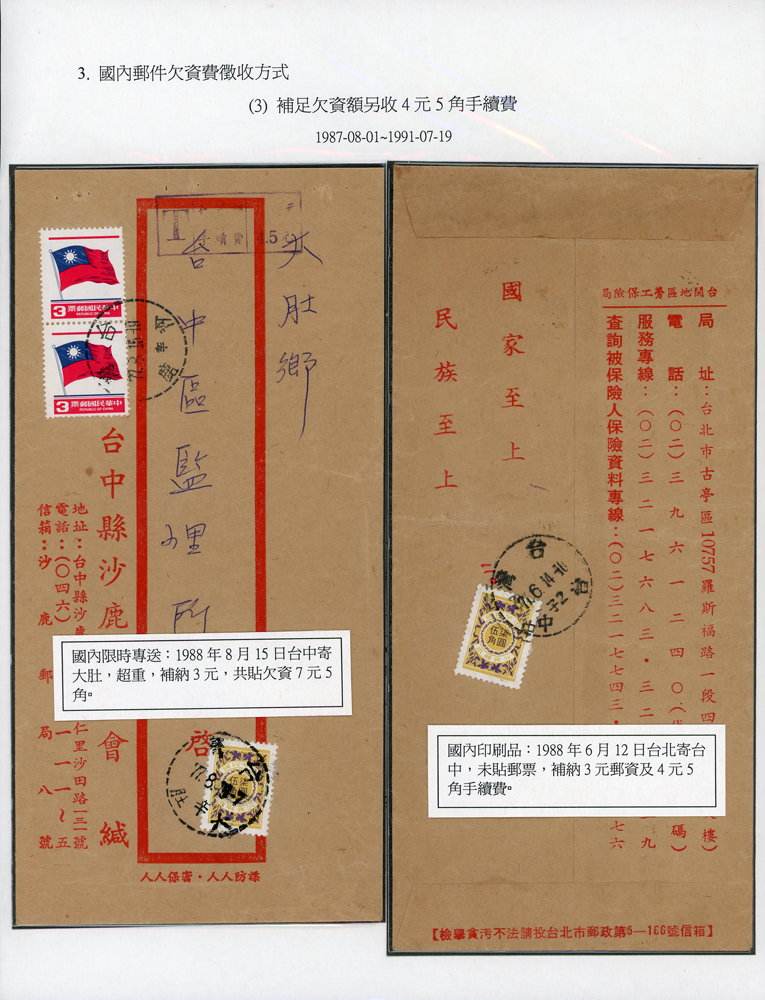 3. 國內郵件欠資費徵收方式
(3) 補足欠資額另收 4 元 5 角手續費
1987-08-01~1991-07-19
T
續費 4.5元
大肚鄉
台中區監理所
啓
中華民國郵票
REPUBLIC OF CHINA
3
中華民國郵票
REPUBLIC OF CHINA
3
台中縣沙鹿
會緘
地址：台中縣沙鹿
仁里沙田路一三一號
電話：（○四六）
一一一～五
信箱：沙鹿郵局八號
國內限時專送：1988 年 8 月 15 日台中寄
大肚，超重，補納 3 元，共貼欠資 7 元 5
角。
柒圓
伍角
大肚
人人保密・人人防諜
台閩地區勞工保險局
局址：台北市古亭區10757羅斯福路一段四
樓）
電話：（○二）三九六一二四○（代
碼）
服務專線：（○二）三二一七六八三・三二
二九
查詢被保險人保險資料專線：（○二）三二一七七四三・
七六
國家至上
民族至上
台
77.6.14.16
台中
柒圓
伍角
國內印刷品：1988 年 6 月 12 日台北寄台
中，未貼郵票，補納 3 元郵資及 4 元 5
角手續費。
【檢舉貪污不法請投台北市郵政第5—166號信箱】